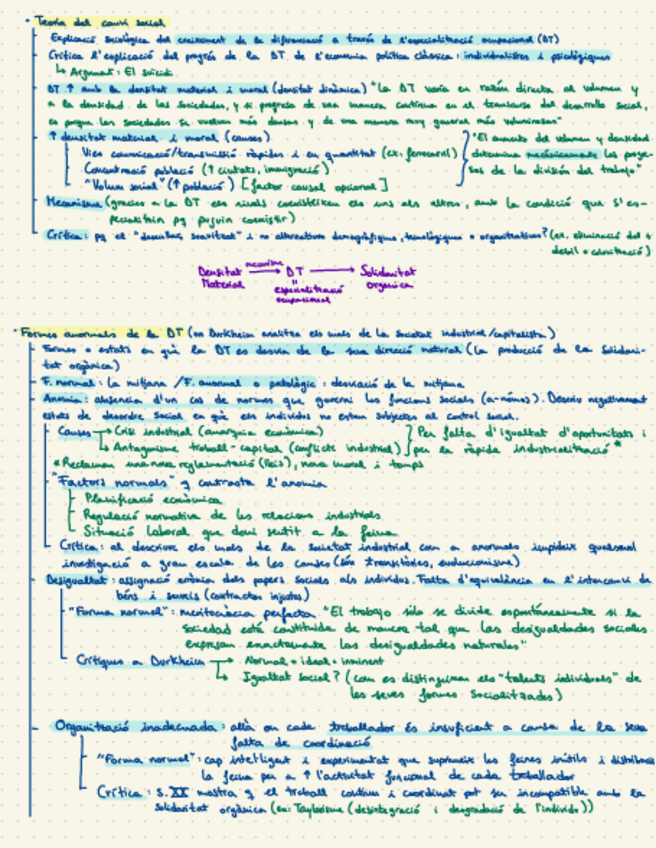 • Teoria del canvi social
Explicació sociològica del creixement de la diferenciació a través de l'especialització ocupacional (DT)
Crítica l'explicació del progrés de la DT de l'economia política clàssica: individualistes i psicològiques
↳ Argument: El suïcidi.
DT ↑ amb la densitat material i moral (densitat dinàmica) "La DT varía en razón directa al volumen y
a la densidad de las sociedades, y si progresa de una manera continua en el transcurso del desarrollo social,
es porque las sociedades se vuelven más densas y de una manera muy general más voluminosas"
↑ densitat material i moral (causes)
Vies comunicació/transmissió ràpides i en quantitat (ex: ferrocarril)
Concentració població (↑ ciutats, immigració)
"Volum social" (↑ població) [factor causal opcional]
"El aumento del volumen y densidad
determina mecánicamente los progre-
sos de la división del trabajo"
Mecanisme (gràcies a la DT els rivals coexisteixen els uns als altres, amb la condició que s'es-
pecialitzin pq puguin coexistir)
Crítica: pq el "desenllaç suavitzat" i no alternatives demogràfiques, tecnològiques o organitzatives? (ex. eliminació del +
dèbil o colonització)
Densitat Material → mecanisme → DT = especialització ocupacional → Solidaritat orgànica
• Formes anormals de la DT (on Durkheim analitza els mals de la societat industrial/capitalista)
Formes o estats en què la DT es desvia de la seva direcció natural (la producció de la solidari-
tat orgànica)
F. normal: la mitjana / F. anormal o patològic: desviació de la mitjana
Anòmia: absència d'un cos de normes que governi les funcions socials (a-nómos). Descriu negativament
estats de desordre social en què els individus no estan subjectes al control social.
Causes → Crisi industrial (anarquia econòmica)
↳ Antagonisme treball-capital (conflicte industrial)
Per falta d'igualtat d'oportunitats i
per la ràpida industrialització *
* Reclamen una nova reglamentació (lleis), nova moral i temps
"Factors normals" q contrasta l'anomia
Planificació econòmica
Regulació normativa de les relacions industrials
Situació laboral que doni sentit a la feina
Crítica: al descriure els mals de la societat industrial com a anormals impideix qualsevol
investigació a gran escala de les causes (són transitòries, evolucionisme)
Desigualtat: assignació errònia dels papers socials als individus. Falta d'equivalència en l'intercanvi de
béns i serveis (contractes injustos)
"Forma normal": meritocràcia perfecta "El trabajo sólo se divide espontáneamente si la
sociedad está constituida de manera tal que las desigualdades sociales
expresan exactamente las desigualdades naturales"
Crítiques a Durkheim → Normal = ideal = imminent
↳ Igualtat social? (com es distingeixen els "talents individuals" de
les seves formes socialitzades)
Organització inadequada: allà on cada treballador és insuficient a causa de la seva
falta de coordinació
"Forma normal": cap intel·ligent i experimentat que suprimeix les feines inútils i distribueix
la feina per a ↑ l'activitat funcional de cada treballador
Crítica: s. XX mostra q el treball continu i coordinat pot ser incompatible amb la
solidaritat orgànica (ex: Taylorisme (desintegració i degradació de l'individu))